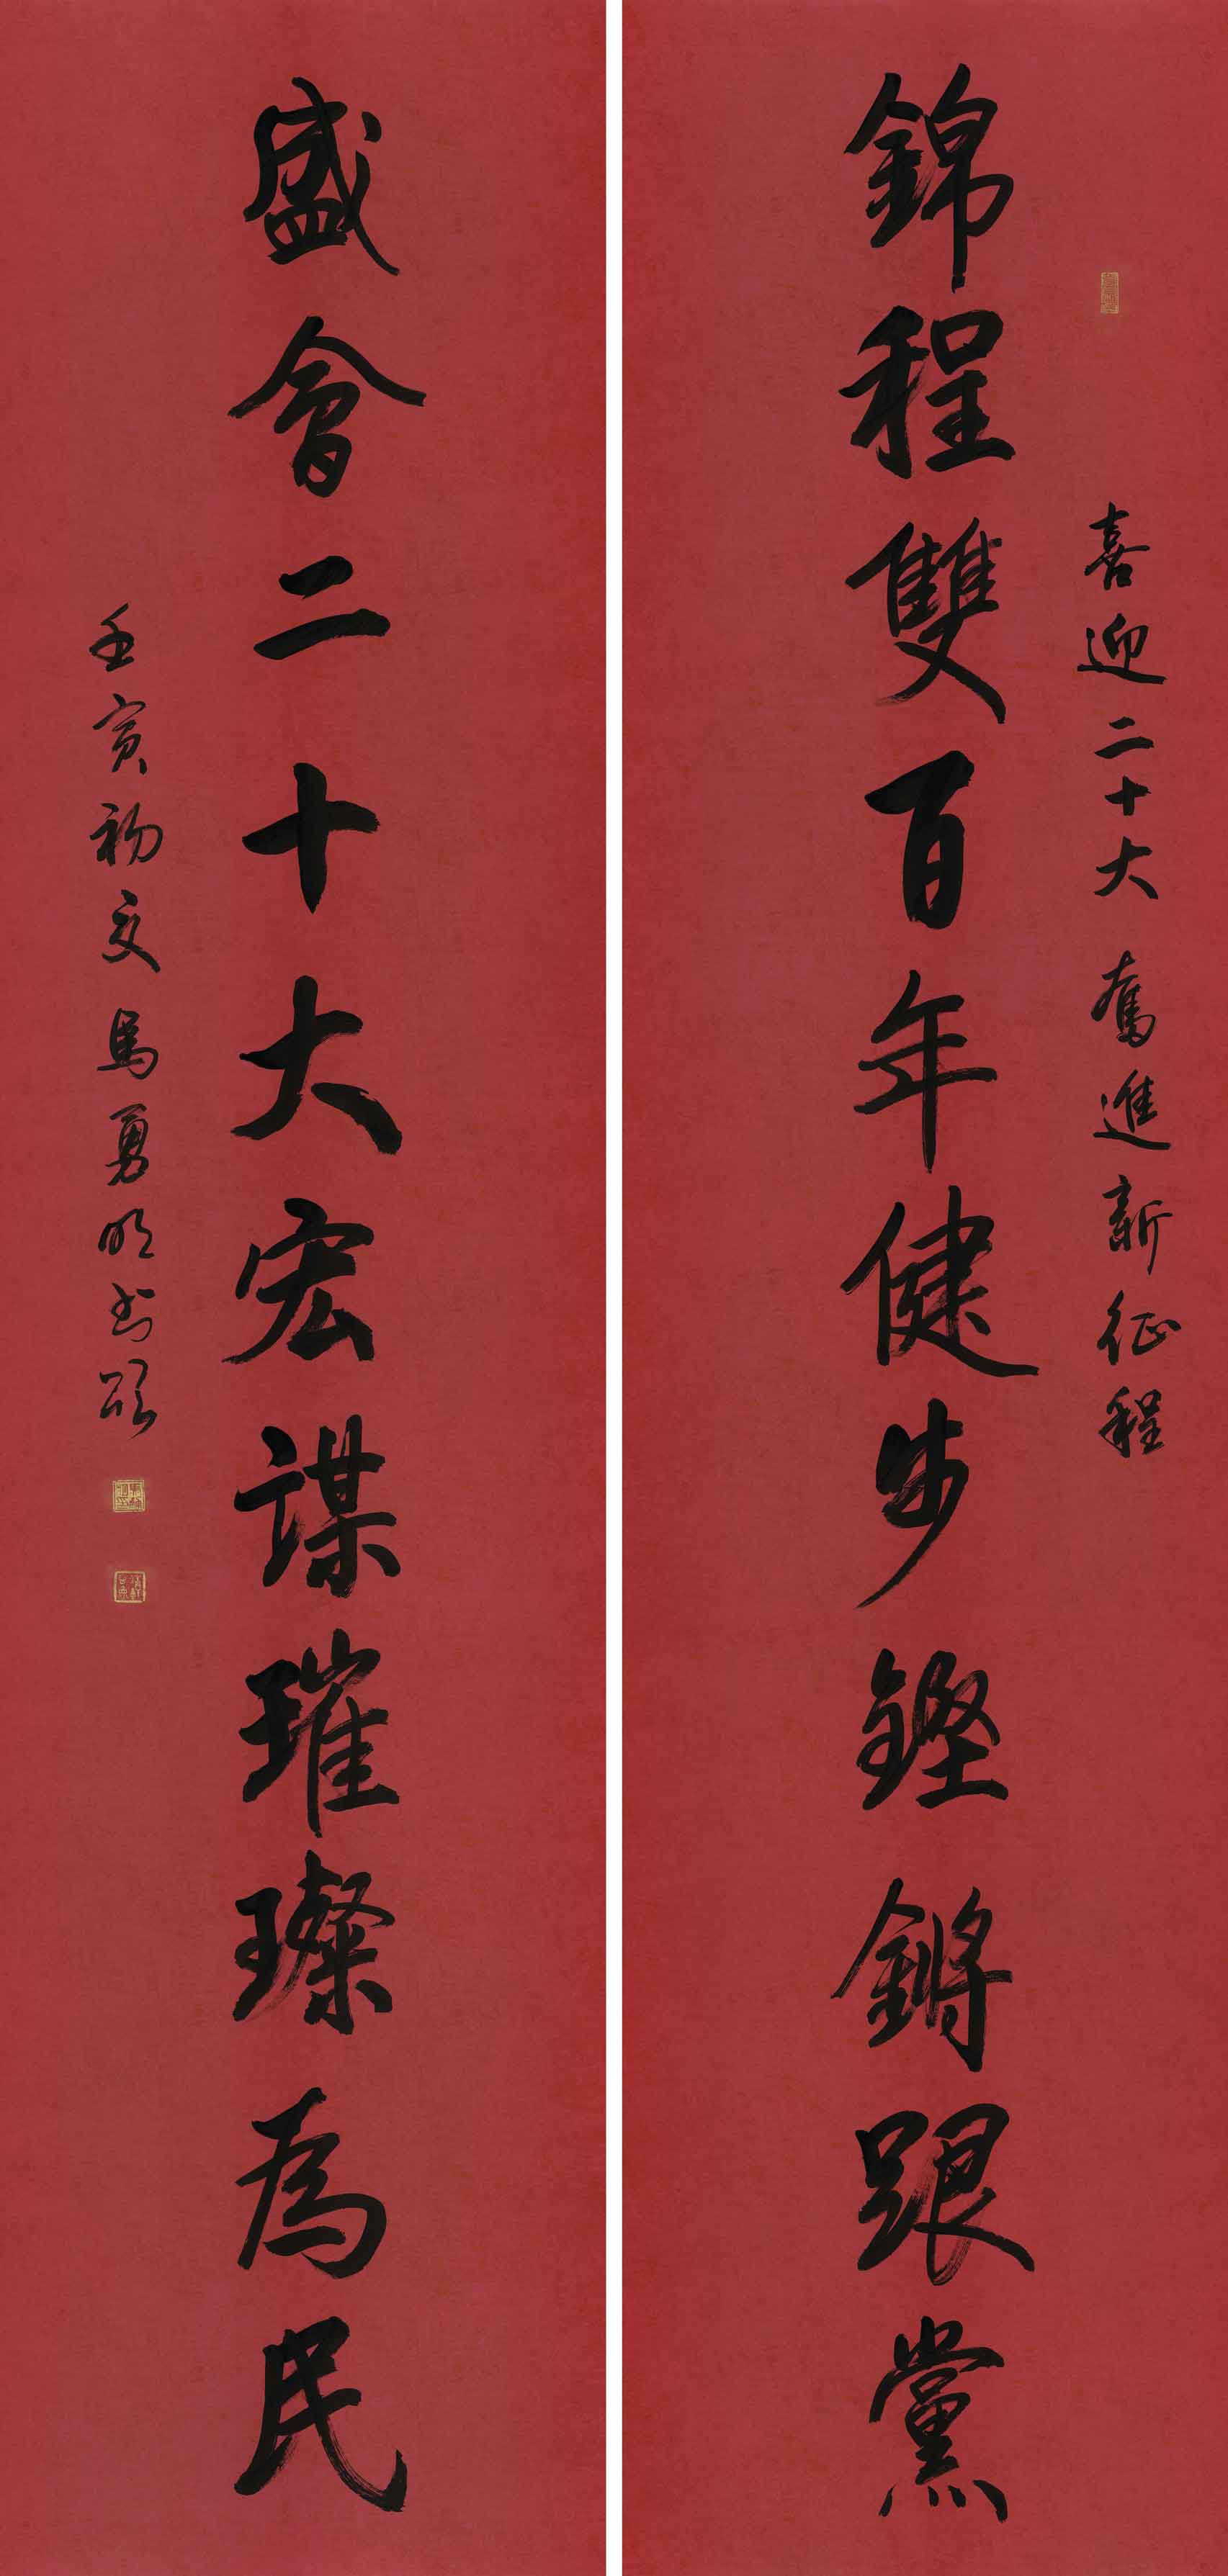 喜迎二十大 奮進新征程
錦程雙百年健步鏗鏘跟黨
盛會二十大宏謀璀璨為民
壬寅初夏馬勇明书頌